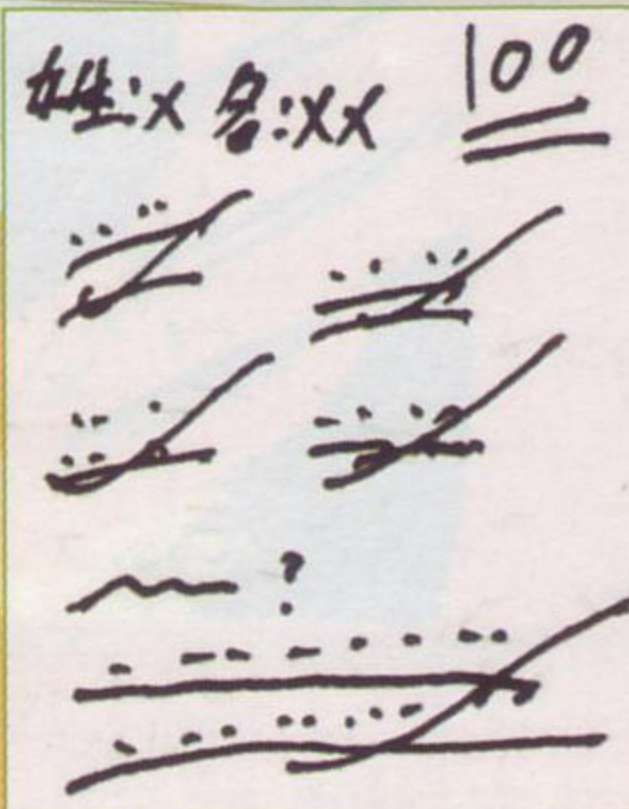 姓:X 名:XX 100
?